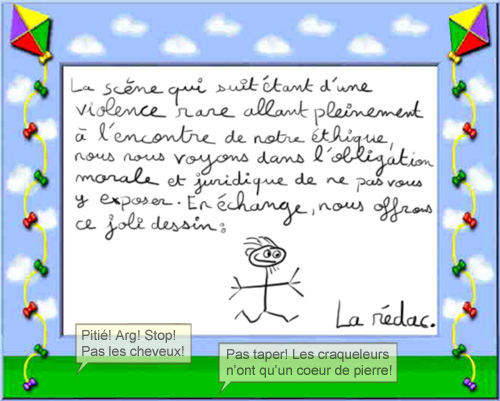 La scène qui suit étant d'une
violence rare allant pleinement
à l'encontre de notre éthique,
nous nous voyons dans l'obligation
morale et juridique de ne pas vous
y exposer. En échange, nous offrons
ce joli dessin:
La rédac.
Pitié! Arg! Stop!
Pas les cheveux!
Pas taper! Les craqueleurs
n'ont qu'un coeur de pierre!